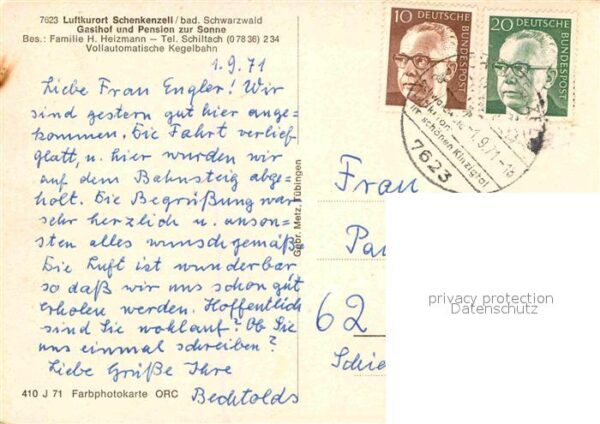 7623 Luftkurort Schenkenzell / bad. Schwarzwald
Gasthof und Pension zur Sonne
Bes.: Familie H. Heizmann — Tel. Schiltach (0 78 36) 2 34
Vollautomatische Kegelbahn
1.9.71
Liebe Frau Engler! Wir
sind gestern gut hier ange-
kommen. Die Fahrt verlief
glatt, u. hier wurden wir
auf dem Bahnsteig abge-
holt. Die Begrüßung war
sehr herzlich u. anson-
sten alles wunschgemäß.
Die Luft ist wunderbar
so daß wir uns schon gut
erholen werden. Hoffentlich
sind Sie wohlauf? Ob Sie
uns einmal schreiben?
Liebe Grüße Ihre
Bechtolds
410 J 71 Farbphotokarte ORC
Gebr. Metz, Tübingen
10 DEUTSCHE BUNDESPOST
20 DEUTSCHE BUNDESPOST
im schönen Kinzigtal
-1.9.71-
7623
Frau
Pa
62
Schie
privacy protection
Datenschutz